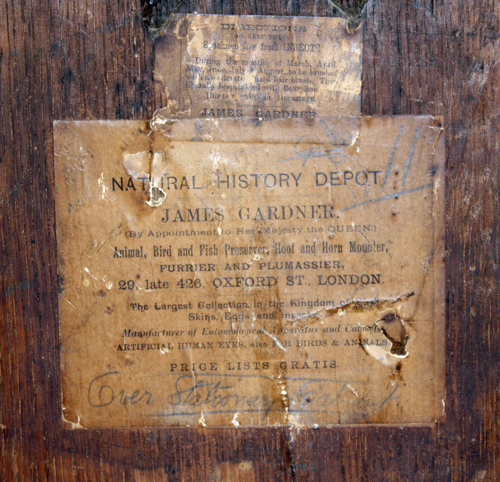 DIRECTIONS
TO KEEP THE
Specimen free from INSECTS
During the months of March, April
May, June, July & August, to be brushed
hair brush. The
with Benzoline
JAMES GARDNER
NATURAL HISTORY DEPOT
11
JAMES GARDNER,
(By Appointment to Her Majesty the QUEEN)
Animal, Bird and Fish Preserver, Hoof and Horn Mounter,
FURRIER AND PLUMASSIER,
29, late 426, OXFORD ST., LONDON.
The Largest Collection in the Kingdom of
Skins, Eggs and Insects.
Manufacturer of Entomological Apparatus and Cabinets
ARTIFICIAL HUMAN EYES, also FOR BIRDS & ANIMALS
PRICE LISTS GRATIS
Over Stationery